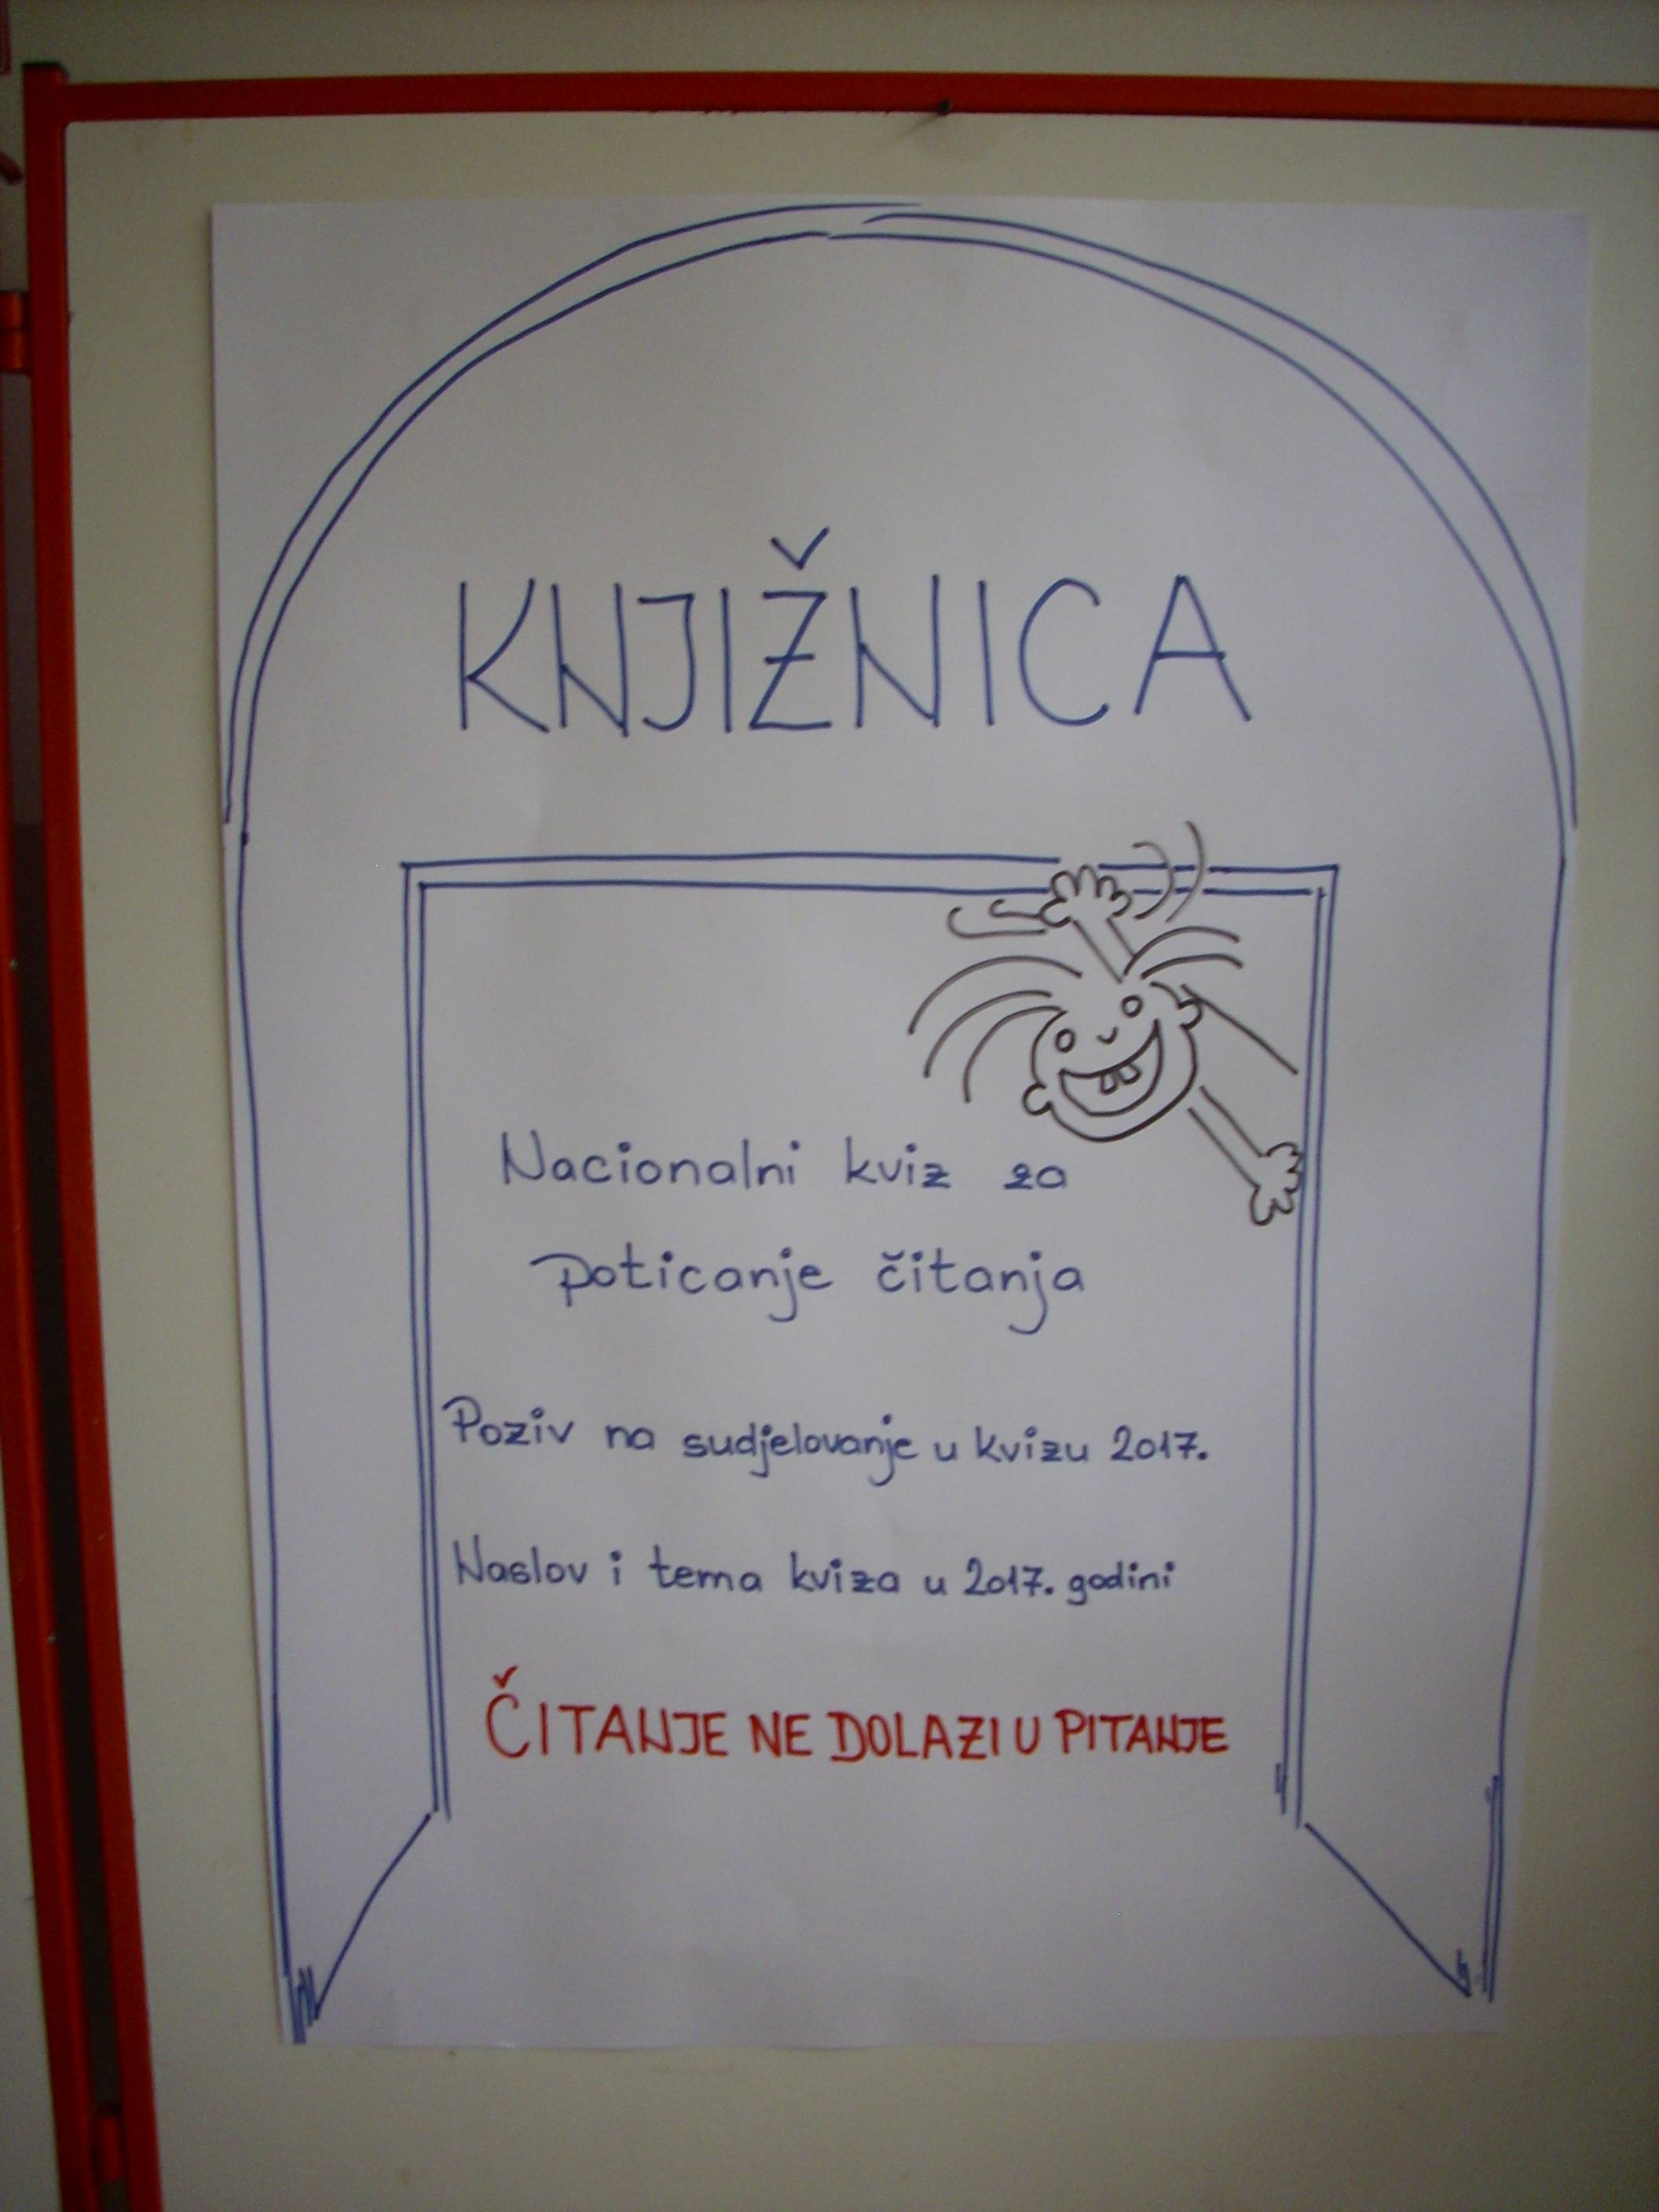 KNJIŽNICA
Nacionalni kviz za
poticanje čitanja
Poziv na sudjelovanje u kvizu 2017.
Naslov i tema kviza u 2017. godini
ČITANJE NE DOLAZI U PITANJE